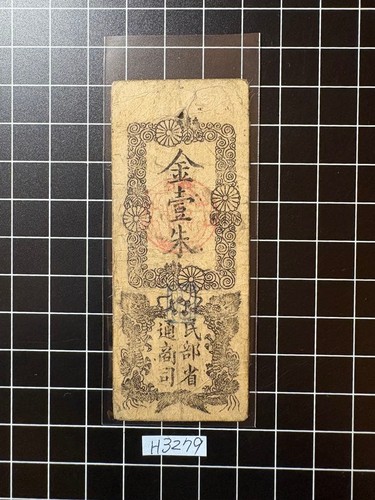 金壹朱
民部省
通商司
H3279